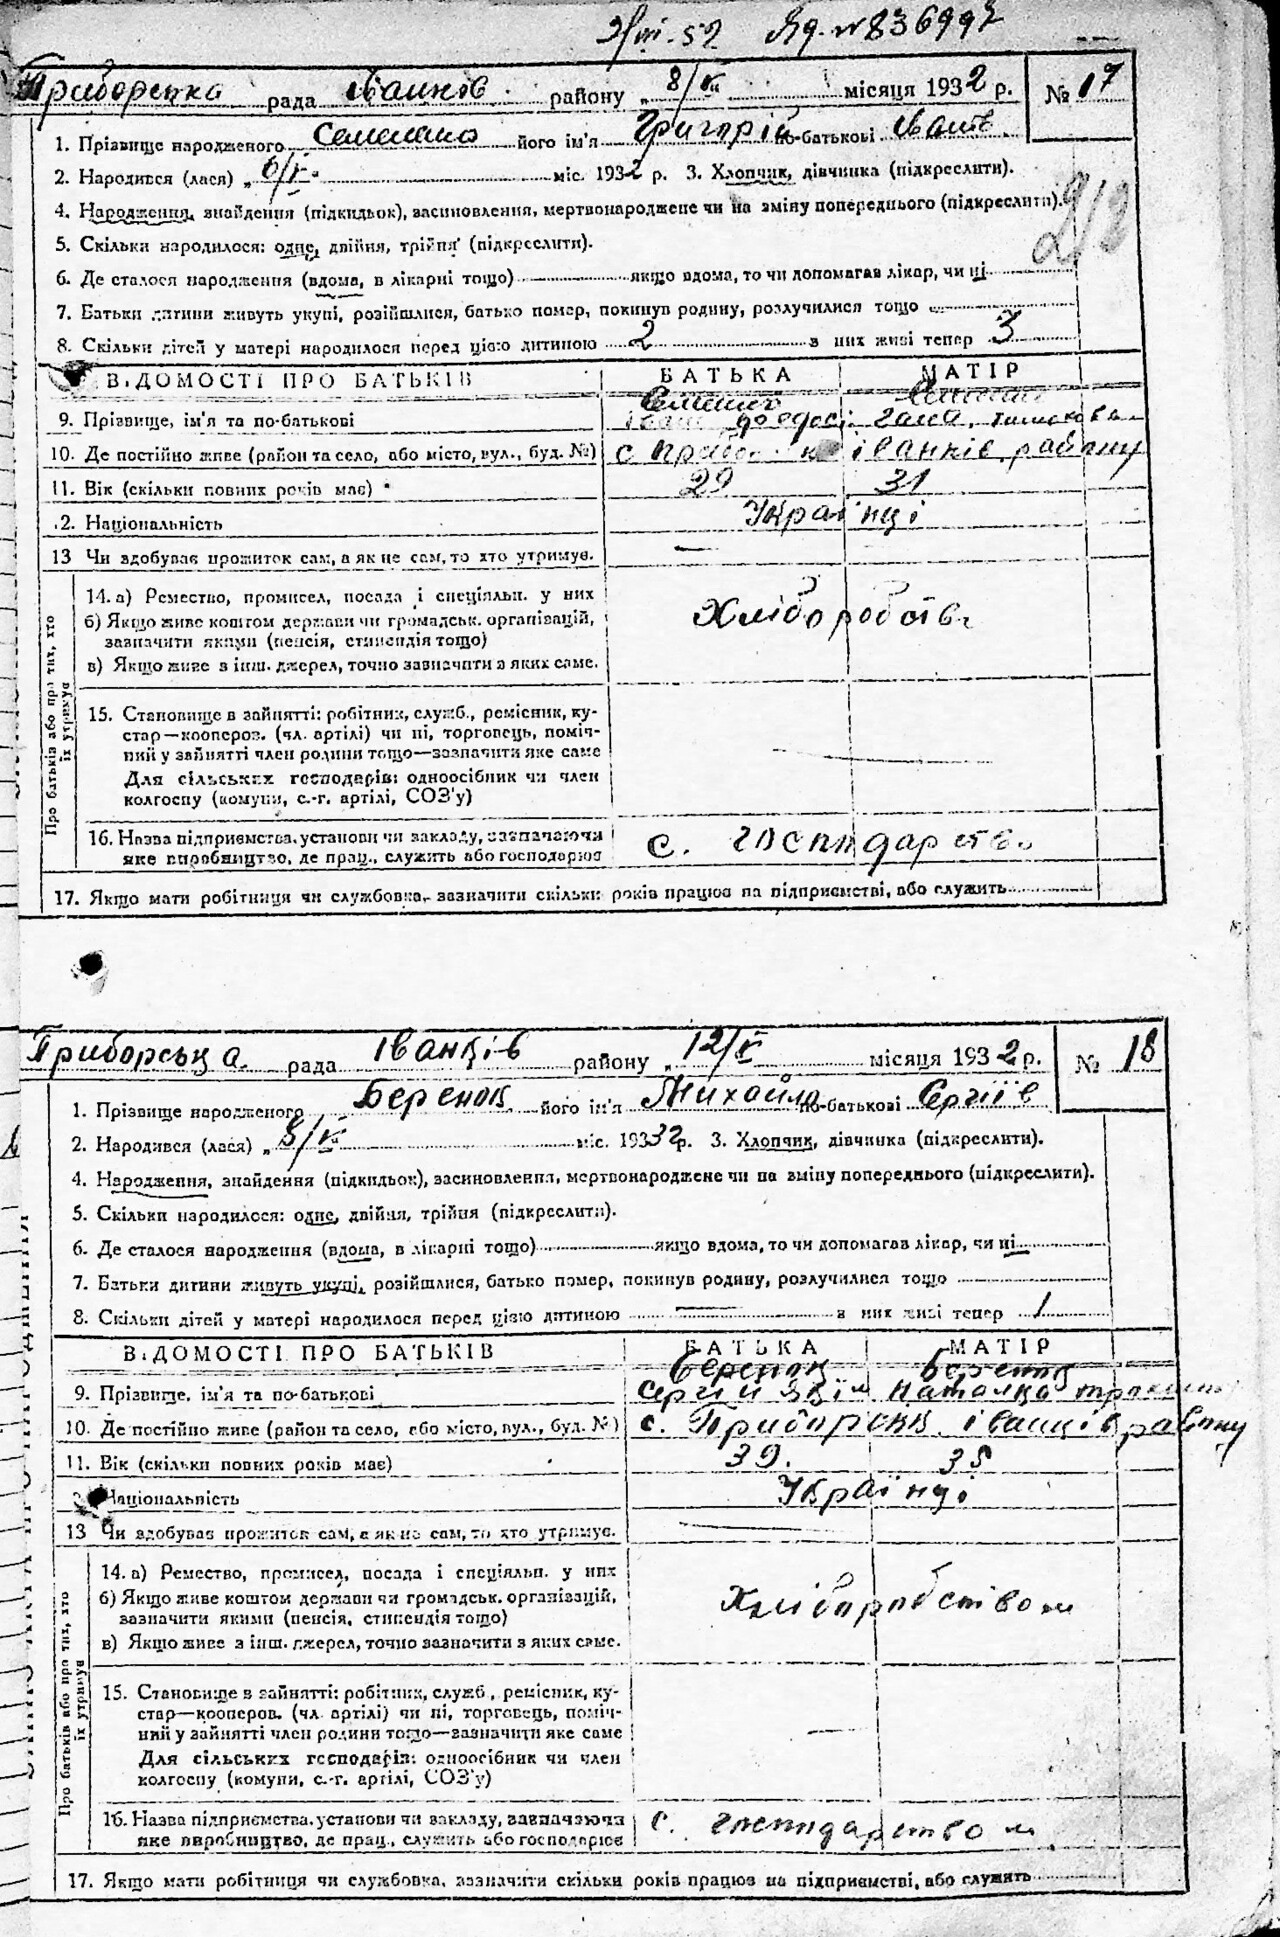 2/VIII-52 Яд. № 836997
Приборська рада Іванків району „8/V м місяця 1932 р. № 17
1. Прізвище народженого Семенко його ім'я Григорій по-батькові Іванів
2. Народився (лася) „6/V м міс. 1932 р. 3. Хлопчик, дівчинка (підкреслити).
4. Народження, знайдення (підкидьок), засиновлення, мертвонароджене чи на зміну попереднього (підкреслити).
5. Скільки народилося: одне, двійня, трійня (підкреслити).
6. Де сталося народження (вдома, в лікарні тощо) якщо вдома, то чи допомагав лікар, чи ні
7. Батьки дитини живуть укупі, розійшлися, батько помер, покинув родину, розлучилися тощо
8. Скільки дітей у матері народилося перед цією дитиною 2 з них живі тепер 3
ВІДОМОСТІ ПРО БАТЬКІВ БАТЬКА МАТІР
9. Прізвище, ім'я та по-батькові
10. Де постійно живе (район та село, або місто, вул., буд. №) с Іванків району
11. Вік (скільки повних років має) 29 31
12. Національність Українці
13 Чи здобуває прожиток сам, а як не сам, то хто утримує. —
Про батьків або про тих, хто їх утримує
14. а) Ремество, промисел, посада і спеціяльн. у них
б) Якщо живе коштом держави чи громадськ. організацій,
зазначити якими (пенсія, стипендія тощо)
в) Якщо живе з інш. джерел, точно зазначити з яких саме.
Хліборобств
15. Становище в зайнятті: робітник, служб., ремісник, ку-
стар—коопероз. (чл. артілі) чи ні, торговець, поміч-
ний у зайнятті член родини тощо—зазначити яке саме
Для сільських господарів: одноосібник чи член
колгоспу (комуни, с.-г. артілі, СОЗ'у)
16. Назва підприємства, установи чи закладу, зазначаючи
яке виробництво, де прац., служить або господарює
с. господарств
17. Якщо мати робітниця чи службовка, зазначити скільки років працює на підприємстві, або служить
Приборська рада Іванків району „12/V місяця 1932 р. № 18
1. Прізвище народженого Беренок його ім'я Михайло по-батькові Сергіїв
2. Народився (лася) „8/V м міс. 1932 р. 3. Хлопчик, дівчинка (підкреслити).
4. Народження, знайдення (підкидьок), засиновлення, мертвонароджене чи на зміну попереднього (підкреслити).
5. Скільки народилося: одне, двійня, трійня (підкреслити).
6. Де сталося народження (вдома, в лікарні тощо) якщо вдома, то чи допомагав лікар, чи ні
7. Батьки дитини живуть укупі, розійшлися, батько помер, покинув родину, розлучилися тощо
8. Скільки дітей у матері народилося перед цією дитиною — з них живі тепер 1
ВІДОМОСТІ ПРО БАТЬКІВ БАТЬКА МАТІР
Беренок Беренок
9. Прізвище, ім'я та по-батькові Сергій Наталка
10. Де постійно живе (район та село, або місто, вул., буд. №) с. Приборськ Іванків району
11. Вік (скільки повних років має) 39. 38
Національність Українці
13 Чи здобуває прожиток сам, а як не сам, то хто утримує. —
Про батьків або про тих, хто їх утримує
14. а) Ремество, промисел, посада і спеціяльн. у них
б) Якщо живе коштом держави чи громадськ. організацій,
зазначити якими (пенсія, стипендія тощо)
в) Якщо живе з інш. джерел, точно зазначити з яких саме.
Хліборобством
15. Становище в зайнятті: робітник, служб., ремісник, ку-
стар—кооперов. (чл. артілі) чи ні, торговець, поміч-
ний у зайнятті член родини тощо—зазначити яке саме
Для сільських господарів: одноосібник чи член
колгоспу (комуни, с.-г. артілі, СОЗ'у)
16. Назва підприємства, установи чи закладу, зазначаючи
яке виробництво, де прац., служить або господарює
с. господарством
17. Якщо мати робітниця чи службовка, зазначити скільки років працює на підприємстві, або служить